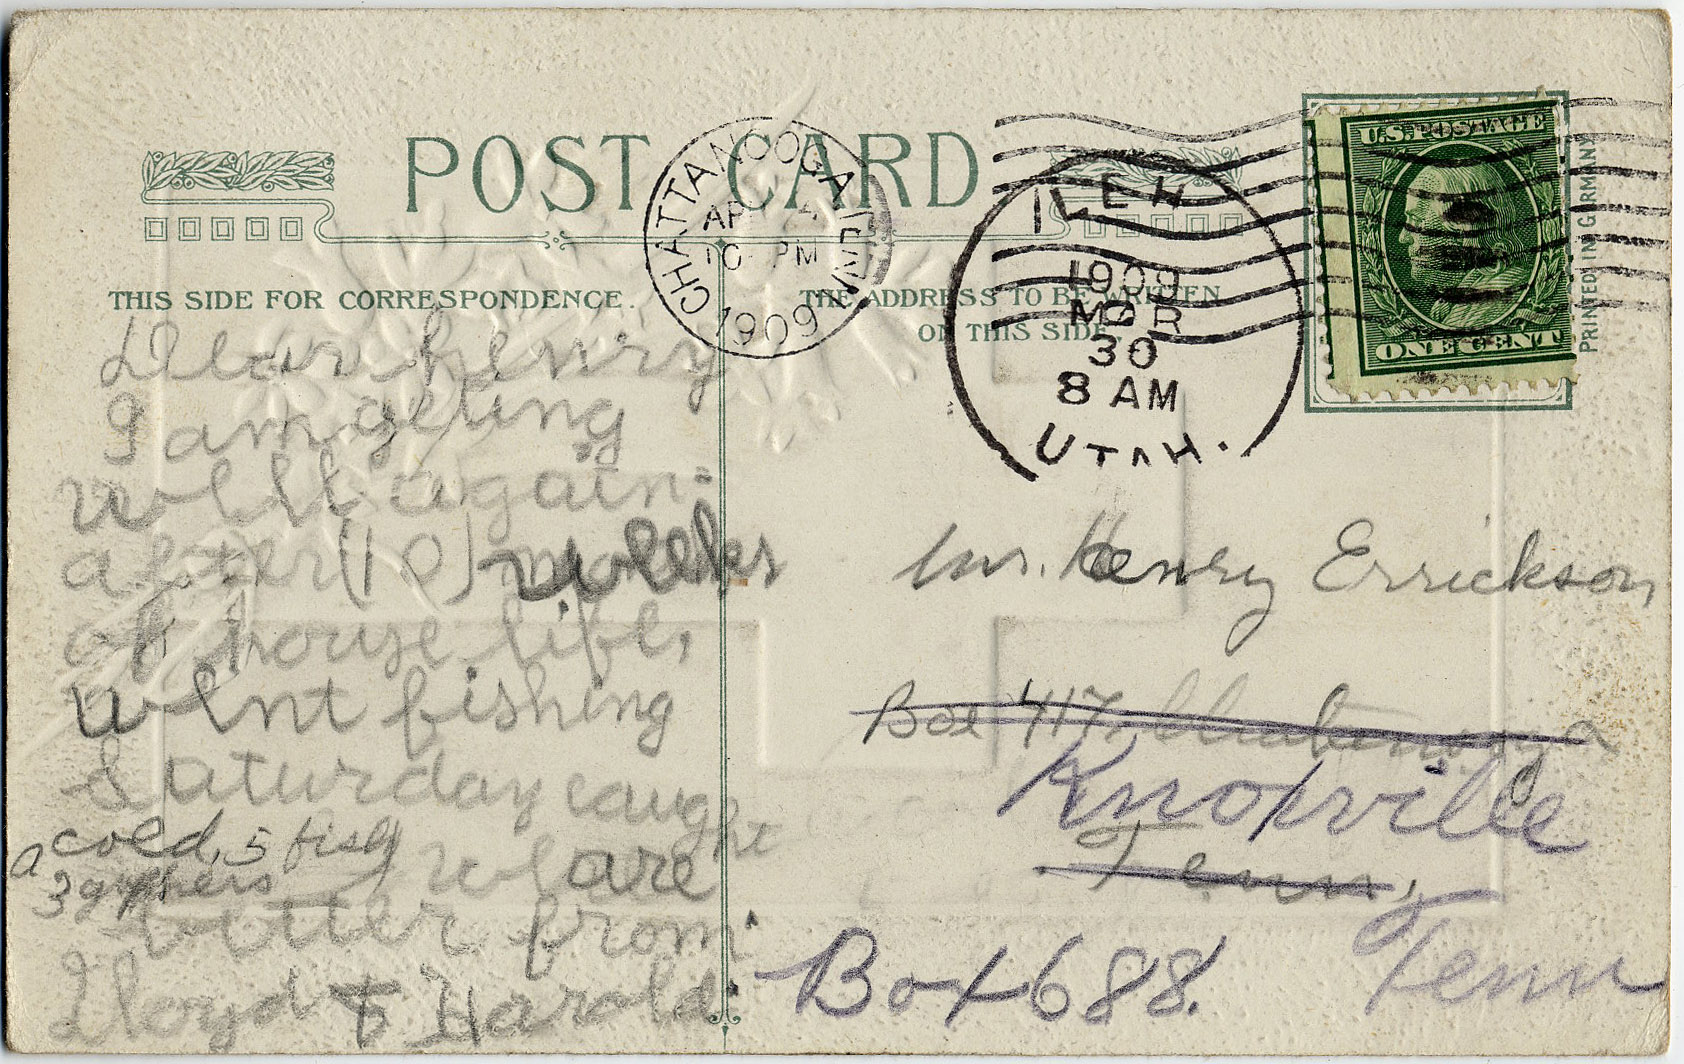 POST CARD
THIS SIDE FOR CORRESPONDENCE.
THE ADDRESS TO BE WRITTEN
ON THIS SIDE
CHATTANOOGA TENN.
AP
10 PM
1909
LEHI
1909
MAR
30
8 AM
UTAH.
U.S. POSTAGE
ONE CENT
PRINTED IN GERMANY
Dear henry
I am geting
well again
after (10) weeks
of house life,
went fishing
Saturday caught
a cold, 5 fish
3
we are
better from
Lloyd & Harold
Mr. Henry Errickson
Box 417
Knoxville
Tenn,
Box 688. Tenn